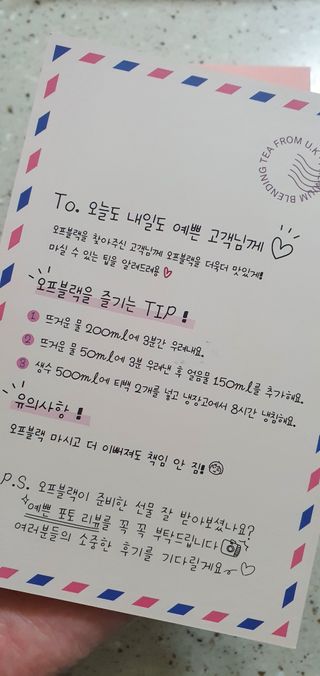 TEA FROM U.K
BLENDING
To. 오늘도 내일도 예쁜 고객님께
오프블랙을 찾아주신 고객님께 오프블랙을 더욱더 맛있게!
마실 수 있는 팁을 알려드려용
오프블랙을 즐기는 TIP!
1 뜨거운 물 200ml에 3분간 우려내요.
2 뜨거운 물 50ml에 3분 우려낸 후 얼음물 150ml를 추가해요.
3 생수 500ml에 티백 2개를 넣고 냉장고에서 8시간 냉침해요.
유의사항!
오프블랙 마시고 더 이뻐져도 책임 안 짐!
P.S. 오프블랙이 준비한 선물 잘 받아보셨나요?
예쁜 포토 리뷰를 꼭 꼭 부탁드립니다
여러분들의 소중한 후기를 기다릴게요~